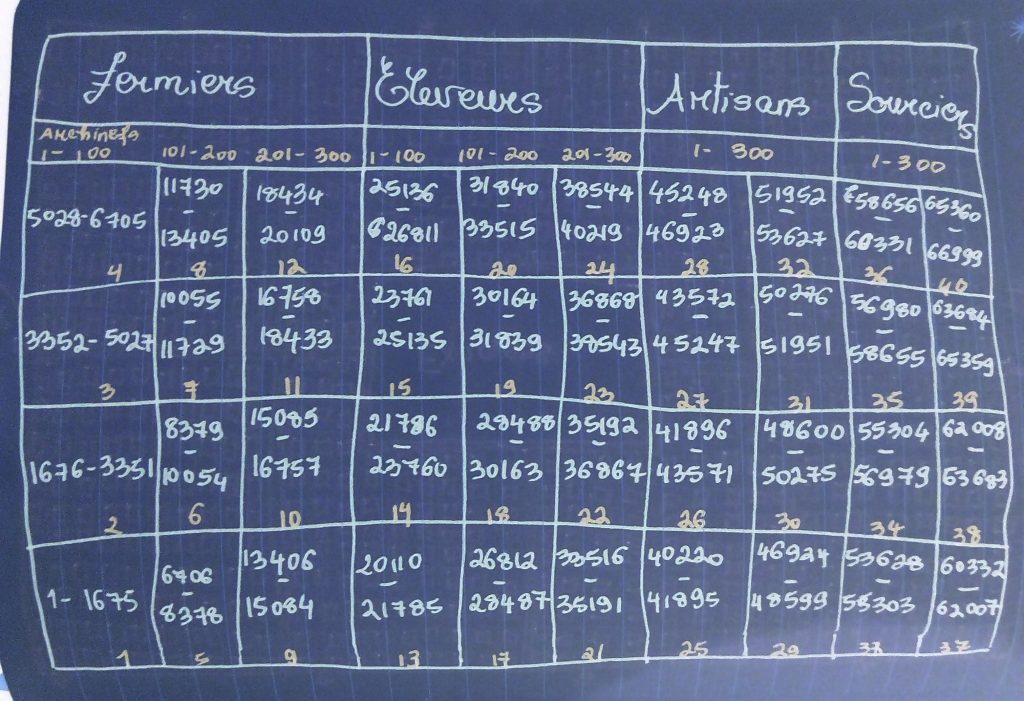 Fermiers Éleveurs Artisans Sourciers
1-100 101-200 201-300 1-100 101-200 201-300 1-300 1-300
5028-6705 11730 - 13405 18434 - 20109 25136 - 26811 31840 - 33515 38544 - 40219 45248 - 46923 51952 - 53627 58656 - 60331 65360 - 66999
4 8 12 16 20 24 28 32 36 40
3352-5027 10055 - 11729 16758 - 18433 23761 - 25135 30164 - 31839 36868 - 38543 43572 - 45247 50276 - 51951 56980 - 58655 63684 - 65359
3 7 11 15 19 23 27 31 35 39
1676-3351 8379 - 10054 15085 - 16757 21786 - 23760 28488 - 30163 35192 - 36867 41896 - 43571 48600 - 50275 55304 - 56979 62008 - 63683
2 6 10 14 18 22 26 30 34 38
1-1675 6706 - 8378 13406 - 15084 20110 - 21785 26812 - 28487 33516 - 35191 40220 - 41895 46924 - 48599 53628 - 55303 60332 - 62007
1 5 9 13 17 21 25 29 37